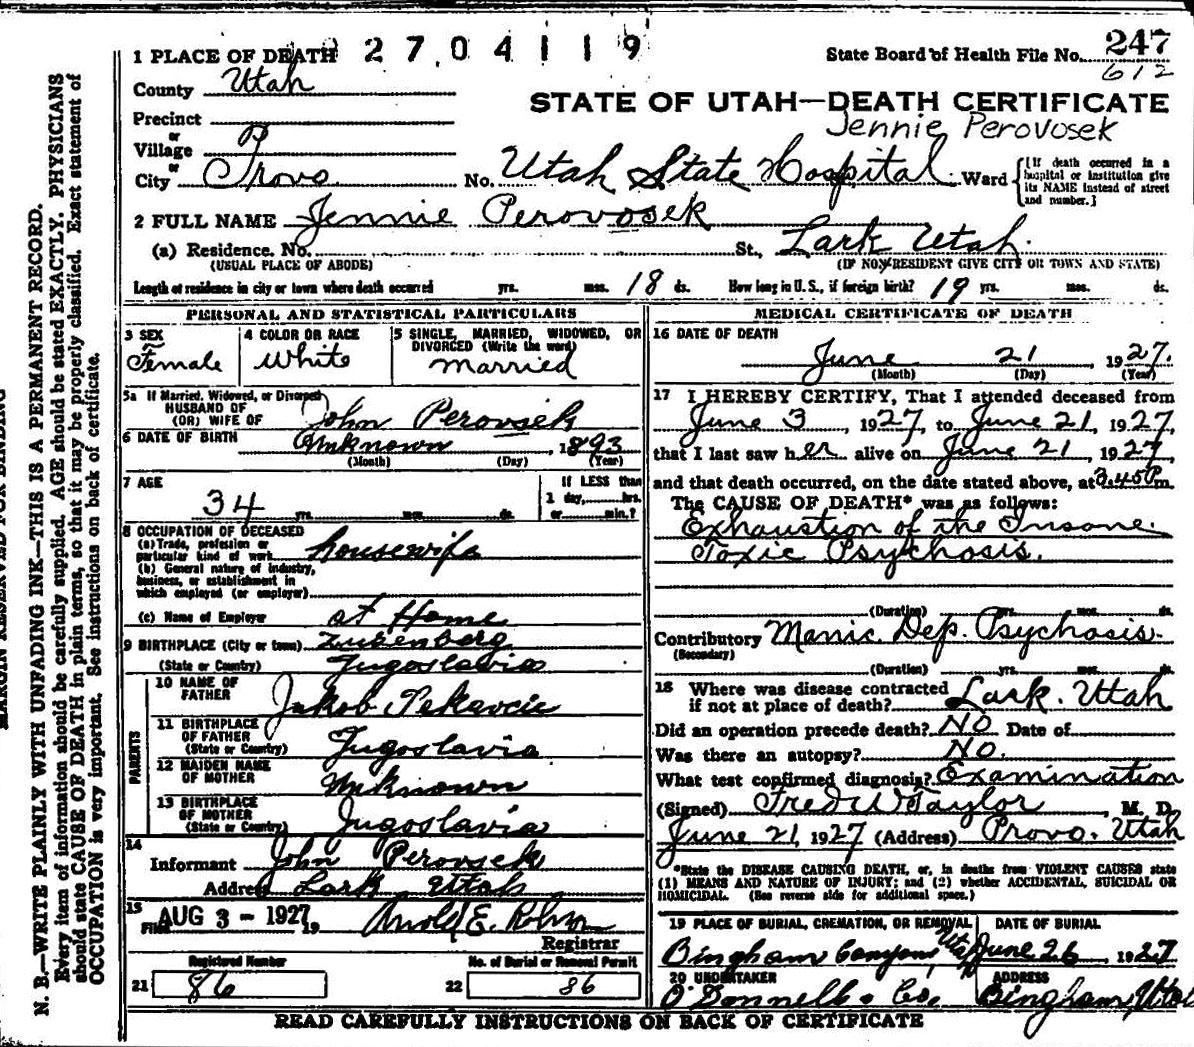 1 PLACE OF DEATH 2704119
State Board of Health File No. 247
612
County Utah
STATE OF UTAH—DEATH CERTIFICATE
Jennie Perovosek
Precinct
or
Village P
or
City Provo No. Utah State Hospital Ward
{[If death occurred in a hospital or institution give its NAME instead of street and number.]
2 FULL NAME Jennie Perovosek
(a) Residence. No. St., Lark Utah.
(USUAL PLACE OF ABODE) (IF NON-RESIDENT GIVE CITY OR TOWN AND STATE)
Length of residence in city or town where death occurred yrs. mos. 18 ds. How long in U.S., if foreign birth? 19 yrs. mos. ds.
PERSONAL AND STATISTICAL PARTICULARS
3 SEX
Female
4 COLOR OR RACE
White
5 SINGLE, MARRIED, WIDOWED, OR DIVORCED (Write the word)
Married
5a If Married, Widowed, or Divorced
HUSBAND OF
(OR) WIFE OF John Perovsek
6 DATE OF BIRTH Unknown, 1893
(Month) (Day) (Year)
7 AGE
34 yrs. mos. ds.
If LESS than
1 day, hrs.
or min.?
8 OCCUPATION OF DECEASED
(a) Trade, profession or
particular kind of work housewife
(b) General nature of industry,
business, or establishment in
which employed (or employer)
(c) Name of Employer at Home
9 BIRTHPLACE (City or town) Zuzenberg
(State or Country) Jugoslavia
PARENTS
10 NAME OF
FATHER Jakob
11 BIRTHPLACE
OF FATHER
(State or Country) Jugoslavia
12 MAIDEN NAME
OF MOTHER Unknown
13 BIRTHPLACE
OF MOTHER
(State or Country) Jugoslavia
14
Informant John Perovsek
Address Lark Utah
15
Filed AUG 3 - 1927, 19 Arnold E. Robison
Registrar
Registered Number No. of Burial or Removal Permit
21 86 22 86
MEDICAL CERTIFICATE OF DEATH
16 DATE OF DEATH
June 21 1927.
(Month) (Day) (Year)
17 I HEREBY CERTIFY, That I attended deceased from
June 3, 1927, to June 21, 1927,
that I last saw her alive on June 21, 1927,
and that death occurred, on the date stated above, at 3.45P m.
The CAUSE OF DEATH* was as follows:
Exhaustion of the Insane.
Toxic Psychosis.
(Duration) yrs. mos. ds.
Contributory Manic Dep. Psychosis.
(Secondary)
(Duration) yrs. mos. ds.
18 Where was disease contracted
if not at place of death? Lark. Utah
Did an operation precede death? No Date of
Was there an autopsy? No.
What test confirmed diagnosis? Examination
(Signed) Fred W Taylor, M. D.
June 21, 1927 (Address) Provo. Utah
*State the DISEASE CAUSING DEATH, or, in deaths from VIOLENT CAUSES state
(1) MEANS AND NATURE OF INJURY; and (2) whether ACCIDENTAL, SUICIDAL OR
HOMICIDAL. (See reverse side for additional space.)
19 PLACE OF BURIAL, CREMATION, OR REMOVAL DATE OF BURIAL
Bingham Canyon Utah June 26, 1927
20 UNDERTAKER ADDRESS
O'Donnell & Co. Bingham, Utah
READ CAREFULLY INSTRUCTIONS ON BACK OF CERTIFICATE
MARGIN RESERVED FOR BINDING
N. B.—WRITE PLAINLY WITH UNFADING INK—THIS IS A PERMANENT RECORD.
Every item of information should be carefully supplied. AGE should be stated EXACTLY. PHYSICIANS
should state CAUSE OF DEATH in plain terms, so that it may be properly classified. Exact statement of
OCCUPATION is very important. See instructions on back of certificate.